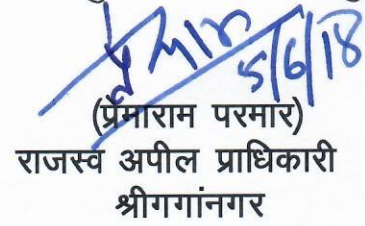 5/6/18
(प्रेमाराम परमार)
राजस्व अपील प्राधिकारी
श्रीगगांनगर